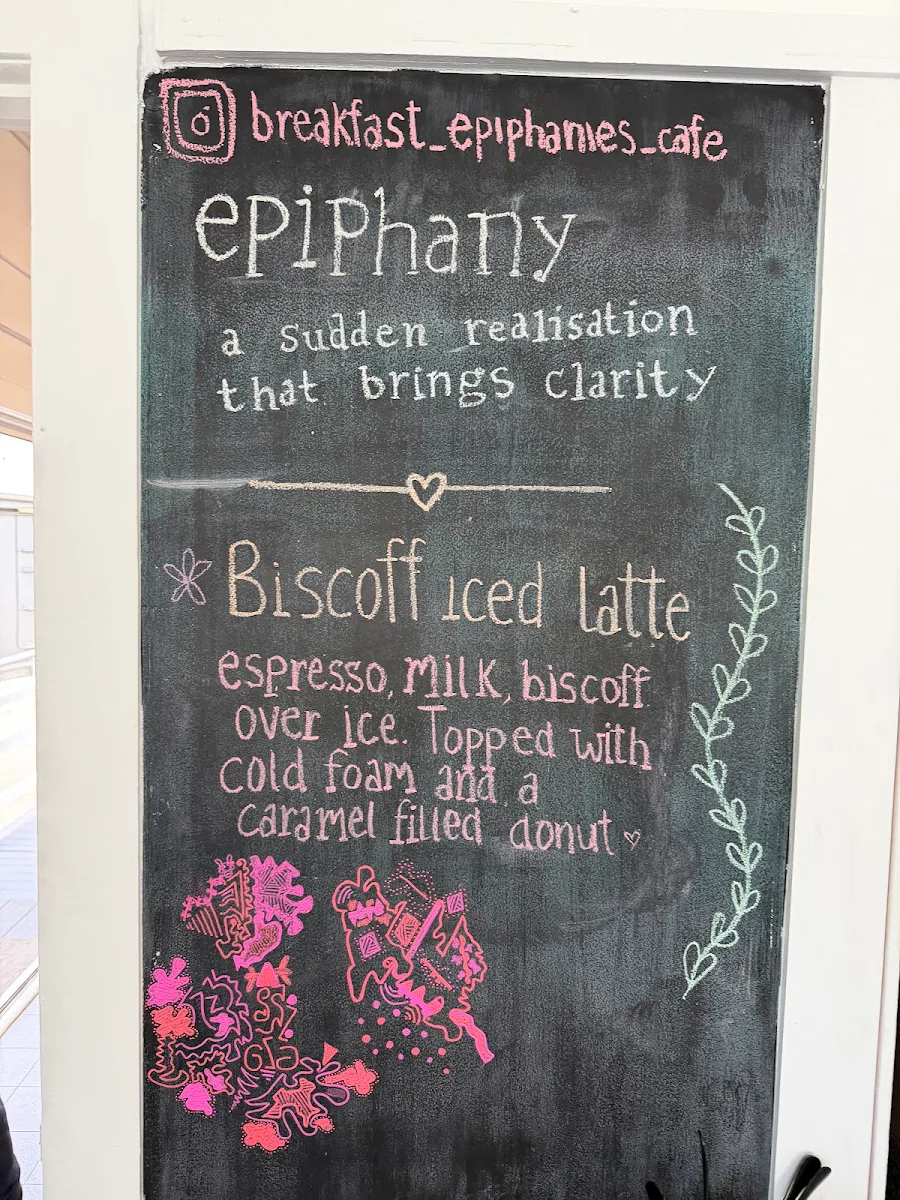 breakfast_epiphanies_cafe
epiphany
a sudden realisation
that brings clarity
Biscoff iced latte
espresso, milk, biscoff
over ice. Topped with
cold foam and a
caramel filled donut